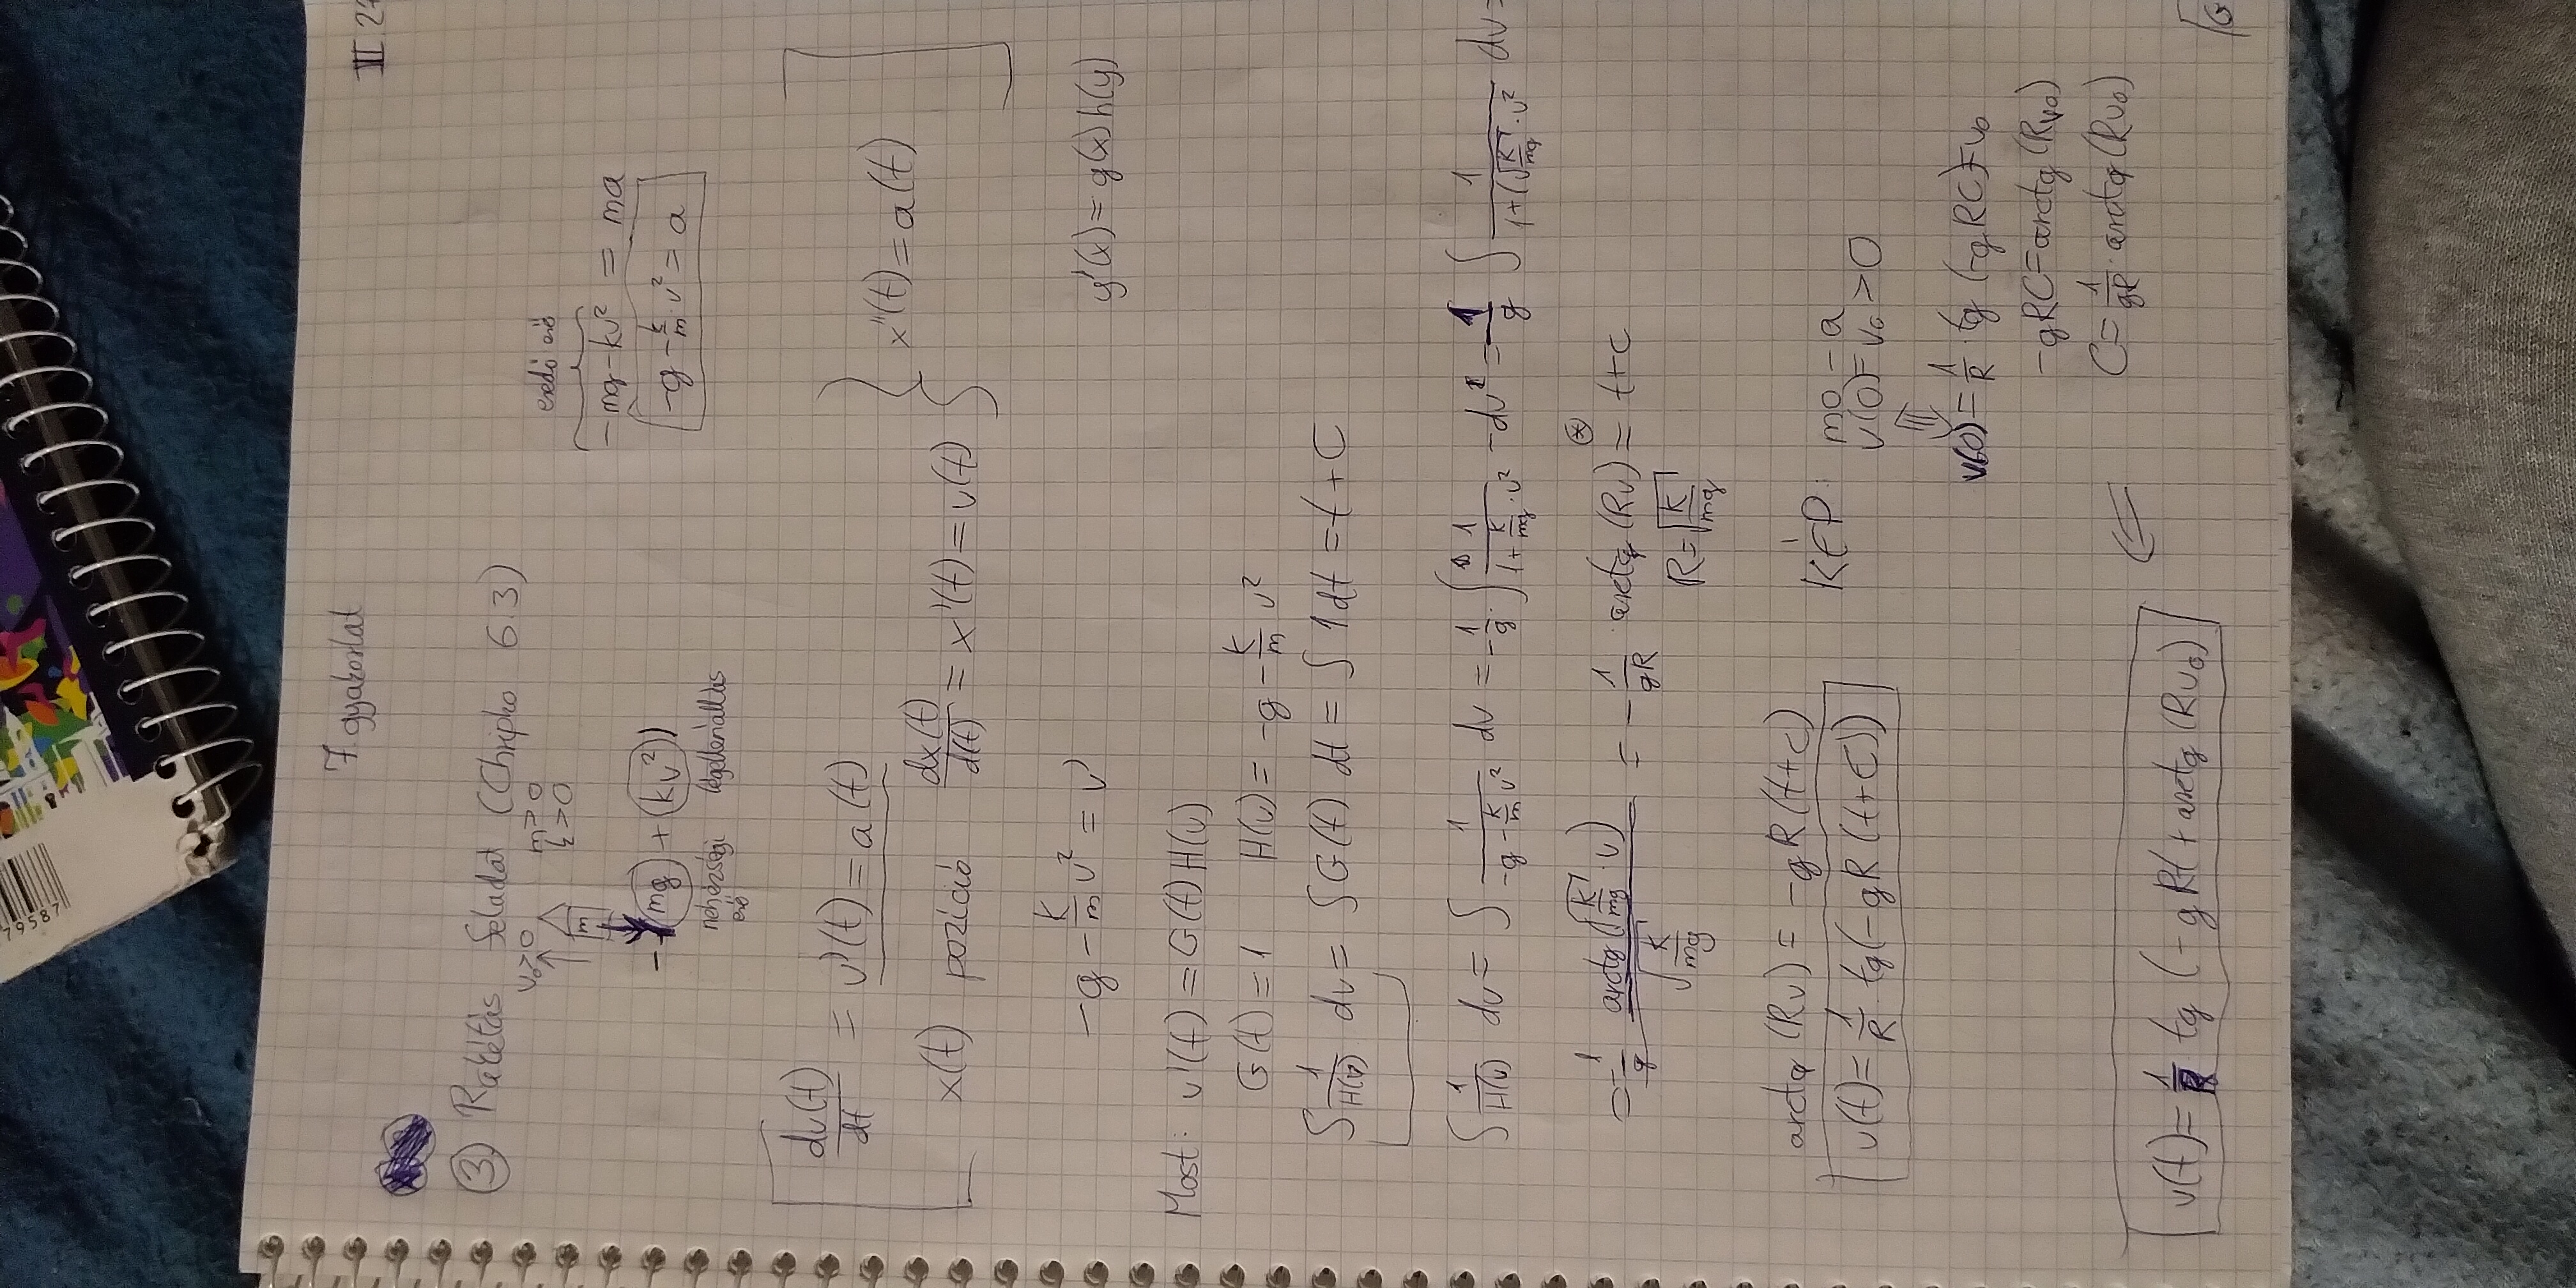 79587
7. gyakorlat
III 27
③ Rakétás feladat (Chripko 6.3)
v₀>0 m>0
k>0
m
-(mg + kv²)
nehézségi erő légellenállás
eredő erő
-mg-kv² = ma
-g-k/m·v² = a
dv(t)/dt = v'(t) = a(t)
x(t) pozíció dx(t)/d(t) = x'(t) = v(t) } x''(t) = a(t)
-g - k/m v² = v'
y'(x) = g(x)h(y)
Most: v'(t) = G(t)H(v)
G(t) = 1 H(v) = -g - k/m v²
∫ 1/H(v) dv = ∫G(t) dt = ∫ 1dt = t + C
∫ 1/H(v) dv = ∫ 1/(-g - k/m v²) dv = -1/g · ∫ 1/(1 + k/mg · v²) dv = -1/g ∫ 1/(1+(√(k/mg) · v² dv =
= -1/g arctg(√(k/mg) · v)/√(k/mg) = -1/gR arctg (Rv) =⊛ t+c
R = √(k/mg)
arctg (Rv) = -gR(t+c)
v(t) = 1/R · tg(-gR(t+C))
KÉP: mo-a
v(0) = v₀ > 0
v(0) = 1/R · tg (-gRC) = v₀
-gRC = arctg (Rv₀)
C = 1/gR · arctg (Rv₀)
⇐
v(t) = 1/R tg (-gRt + arctg (Rv₀)